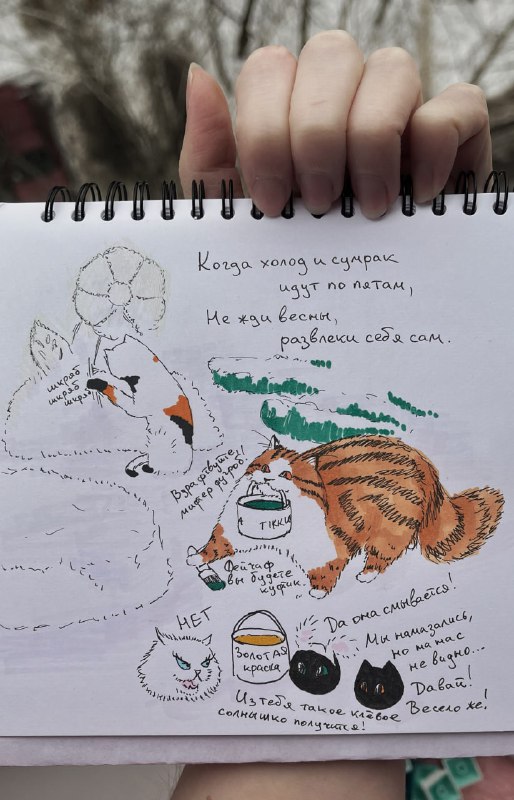 Когда холод и сумрак
идут по пятам,
Не жди весны,
развлеки себя сам.
шкряб
шкряб
шкря
мистер
А ТІККИ
вы будете
НЕТ
ЗОЛОТАЯ
краска
Да она смывается!
Мы намазались,
но на нас
не видно...
Давай!
Весело же!
Из тебя такое клёвое
солнышко получится!